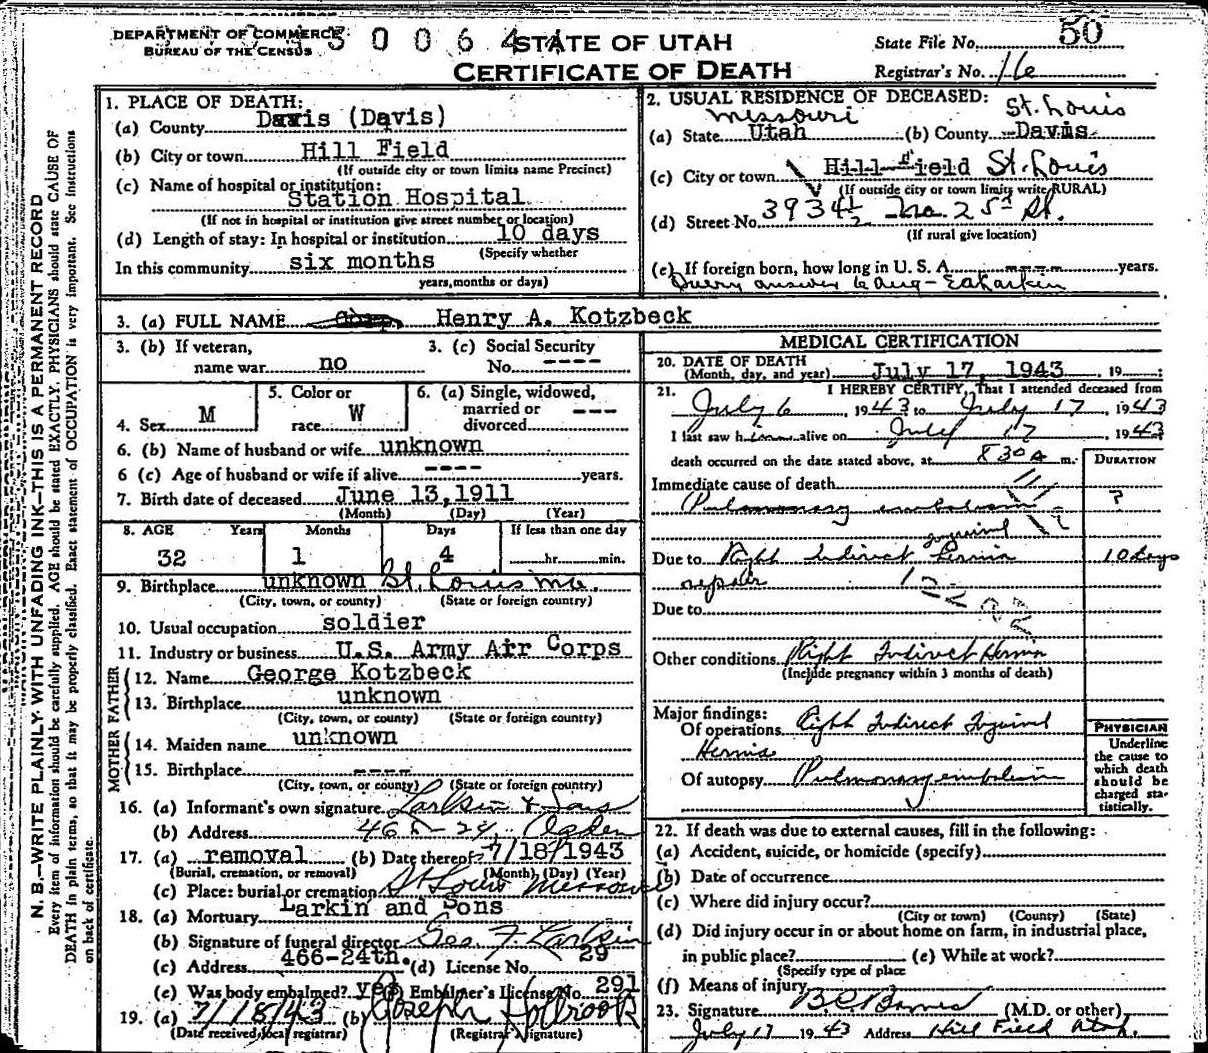 DEPARTMENT OF COMMERCE
BUREAU OF THE CENSUS
3 0 0 6 4
STATE OF UTAH
CERTIFICATE OF DEATH
State File No. 50
Registrar's No. 16
N. B.—WRITE PLAINLY WITH UNFADING INK—THIS IS A PERMANENT RECORD
Every item of information should be carefully supplied. AGE should be stated EXACTLY. PHYSICIANS should state CAUSE OF
DEATH in plain terms, so that it may be properly classified. Exact statement of OCCUPATION is very important. See instructions
on back of certificate.
1. PLACE OF DEATH:
(a) County Davis (Davis)
(b) City or town Hill Field
(If outside city or town limits name Precinct)
(c) Name of hospital or institution:
Station Hospital
(If not in hospital or institution give street number or location)
(d) Length of stay: In hospital or institution 10 days
(Specify whether
In this community six months
years, months or days)
2. USUAL RESIDENCE OF DECEASED:
Missouri St. Louis
(a) State Utah (b) County Davis
(c) City or town Hill Field St. Louis
(If outside city or town limits write RURAL)
(d) Street No. 3934½ No. 25th St.
(If rural give location)
(e) If foreign born, how long in U. S. A. ---- years.
Query answer 6 Aug - Larkin
3. (a) FULL NAME Henry A. Kotzbeck
3. (b) If veteran,
name war no
3. (c) Social Security
No. ----
4. Sex M
5. Color or
race W
6. (a) Single, widowed,
married or
divorced ---
6. (b) Name of husband or wife unknown
6 (c) Age of husband or wife if alive ---- years.
7. Birth date of deceased June 13, 1911
(Month) (Day) (Year)
8. AGE Years Months Days If less than one day
32 1 4 hr. min.
9. Birthplace unknown St. Louis Mo.
(City, town, or county) (State or foreign country)
10. Usual occupation soldier
11. Industry or business U.S. Army Air Corps
FATHER
12. Name George Kotzbeck
13. Birthplace unknown
(City, town, or county) (State or foreign country)
MOTHER
14. Maiden name unknown
15. Birthplace ----
(City, town, or county) (State or foreign country)
16. (a) Informant's own signature Larkin & Sons
(b) Address 466-24, Ogden
17. (a) removal (b) Date thereof 7/18/1943
(Burial, cremation, or removal) (Month) (Day) (Year)
(c) Place: burial or cremation St Louis Missouri
18. (a) Mortuary Larkin and Sons
(b) Signature of funeral director Geo F. Larkin
(c) Address 466-24th. (d) License No. 29
(e) Was body embalmed? yes Embalmer's License No. 291
19. (a) 7/18/43 (b) Joseph Holbrook
(Date received local registrar) (Registrar's Signature)
MEDICAL CERTIFICATION
20. DATE OF DEATH
(Month, day, and year) July 17, 1943, 19 :
21. I HEREBY CERTIFY, That I attended deceased from
July 6, 1943 to July 17, 1943
I last saw him alive on July 17, 1943
death occurred on the date stated above, at 830A m.
DURATION
Immediate cause of death
Pulmonary embolism ?
Due to Right Indirect Inguinal Hernia 10 days
repair
Due to
Other conditions Right Indirect Hernia
(Include pregnancy within 3 months of death)
Major findings:
Of operations Right Indirect Inguinal
Hernia
Of autopsy Pulmonary embolism
PHYSICIAN
Underline
the cause to
which death
should be
charged sta-
tistically.
22. If death was due to external causes, fill in the following:
(a) Accident, suicide, or homicide (specify)
(b) Date of occurrence
(c) Where did injury occur?
(City or town) (County) (State)
(d) Did injury occur in or about home on farm, in industrial place,
in public place? (e) While at work?
(Specify type of place
(f) Means of injury
23. Signature (M.D. or other)
July 17 1943 Address Hill Field Utah.